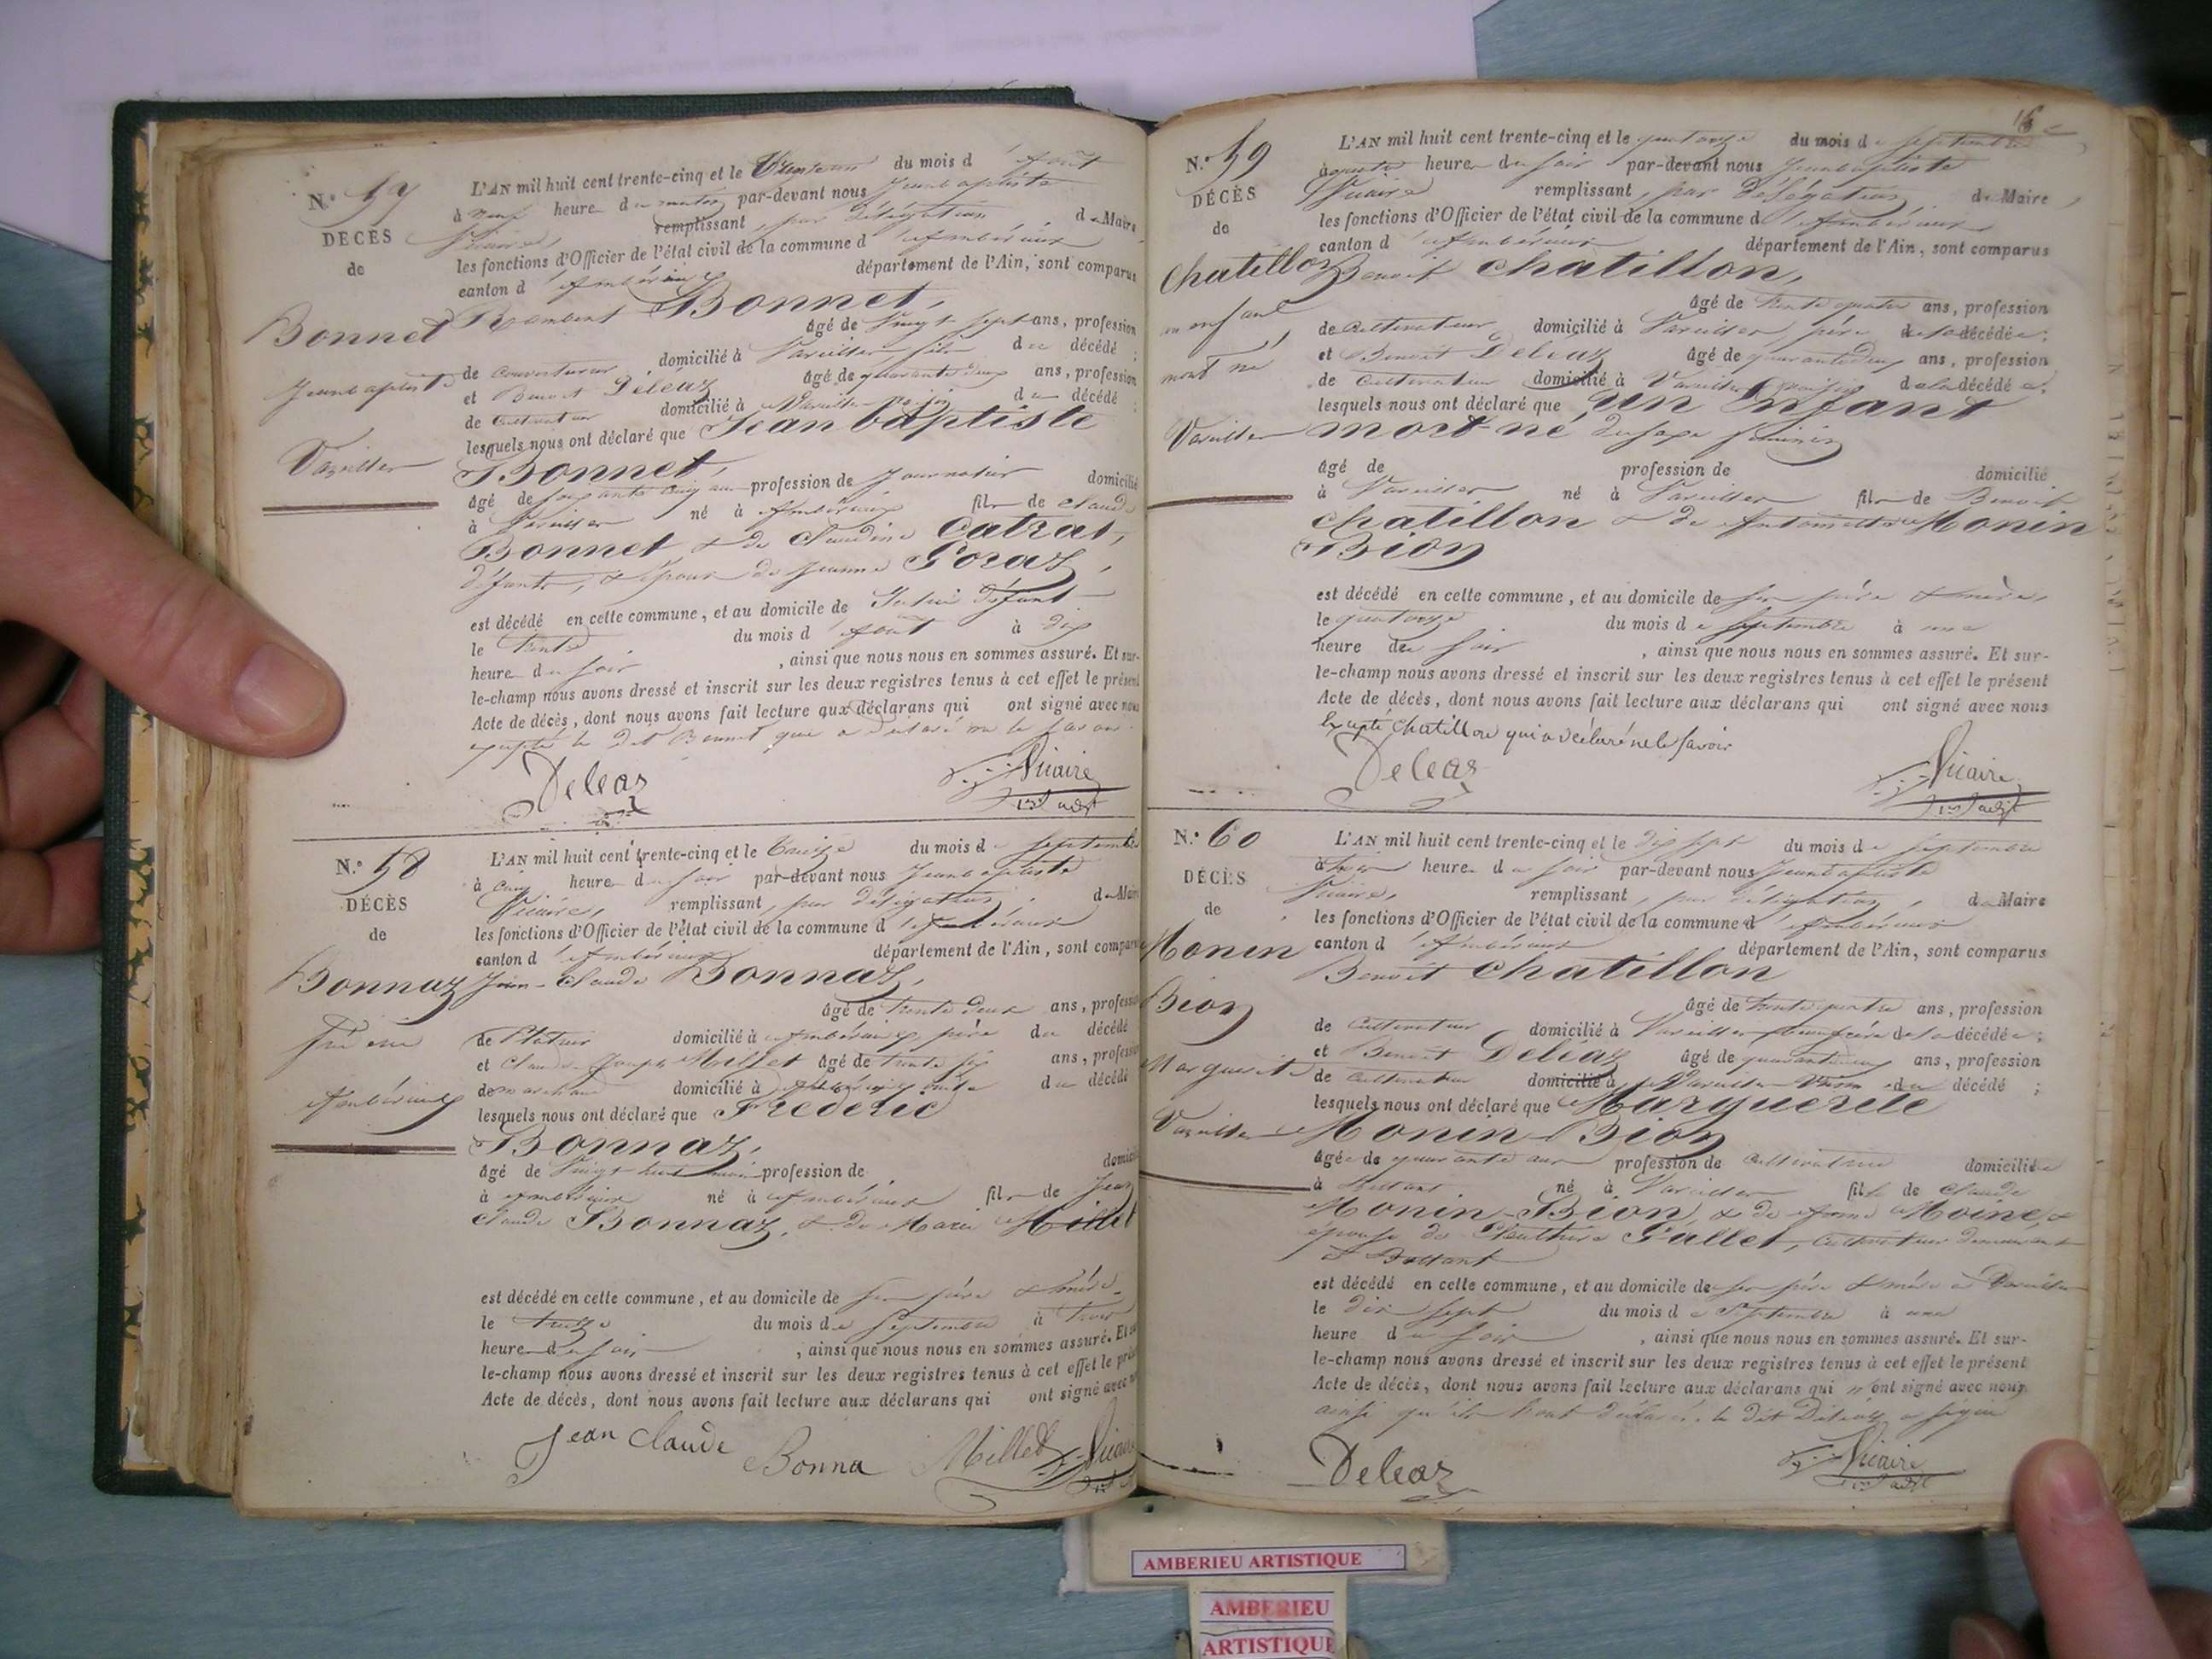 DÉCÈS
de
Bonnet
Jeanbaptiste
Vareilles
L'AN mil huit cent trente-cinq et le du mois d'août
à neuf heure du matin par-devant nous Jeanbaptiste
Vicaire, remplissant, par délégation, du Maire
les fonctions d'Officier de l'état civil de la commune d'Ambérieux
canton d'Ambérieux département de l'Ain, sont comparus
Rambert Bonnet,
âgé de Vingt sept ans, profession
de domicilié à Vareilles fils du décédé ;
et Benoit Deléaz âgé de quarante deux ans, profession
de Cultivateur domicilié à Vareilles voisin du décédé ;
lesquels nous ont déclaré que Jean baptiste
Bonnet,
âgé de soixante cinq ans profession de Journalier domicilié
à Vareilles né à Ambérieux fils de Claude
Bonnet & de Claudine Catras,
défunts, & époux de Jeanne Goraz,
est décédé en cette commune, et au domicile de défunt
le trente du mois d'août à dix
heure du soir, ainsi que nous nous en sommes assuré. Et sur-
le-champ nous avons dressé et inscrit sur les deux registres tenus à cet effet le présent
Acte de décès, dont nous avons fait lecture aux déclarans qui ont signé avec nous
excepté le dit Bonnet qui a déclaré ne le savoir
Deleaz Vicaire
N.° 58
DÉCÈS
de
Bonnaz
Ambérieux
L'AN mil huit cent trente-cinq et le treize du mois de Septembre
à cinq heure du soir par-devant nous Jeanbaptiste
Vicaire, remplissant, par délégation, du Maire
les fonctions d'Officier de l'état civil de la commune d'Ambérieux
canton d'Ambérieux département de l'Ain, sont comparus
Jean-Claude Bonnaz,
âgé de trente deux ans, profession
de Platrier domicilié à Ambérieux père du décédé
et Claude Joseph Millet âgé de trente six ans, profession
de marchand domicilié à Ambérieux oncle du décédé
lesquels nous ont déclaré que Frédéric
Bonnaz,
âgé de Vingt huit mois profession de domicilié
à Ambérieux né à Ambérieux fils de Jean
Claude Bonnaz, & de Marie Millet
est décédé en cette commune, et au domicile de ses père & mère
le treize du mois de Septembre à trois
heure du soir, ainsi que nous nous en sommes assuré. Et sur-
le-champ nous avons dressé et inscrit sur les deux registres tenus à cet effet le présent
Acte de décès, dont nous avons fait lecture aux déclarans qui ont signé avec nous
Jean Claude Bonna Millet Vicaire
N.° 59
DÉCÈS
de
Chatillon
un enfant
mort né
Vareilles
L'AN mil huit cent trente-cinq et le quatorze du mois de Septembre
à quatre heure du soir par-devant nous Jeanbaptiste
Vicaire, remplissant, par délégation, du Maire
les fonctions d'Officier de l'état civil de la commune d'Ambérieux
canton d'Ambérieux département de l'Ain, sont comparus
Benoit Chatillon,
âgé de trente quatre ans, profession
de Cultivateur domicilié à Vareilles père de la décédée ;
et Benoit Deléaz âgé de quarante deux ans, profession
de Cultivateur domicilié à Vareilles voisin de la décédée.
lesquels nous ont déclaré que un Enfant
mort-né du sexe féminin
âgé de profession de domicilié
à Vareilles né à Vareilles fils de Benoit
Chatillon & de Antoinette Monin
Bion
est décédé en cette commune, et au domicile de ses père & mère,
le quatorze du mois de Septembre à une
heure du soir, ainsi que nous nous en sommes assuré. Et sur-
le-champ nous avons dressé et inscrit sur les deux registres tenus à cet effet le présent
Acte de décès, dont nous avons fait lecture aux déclarans qui ont signé avec nous
Excepté Chatillon qui a déclaré ne le savoir
Deleaz Vicaire
N.° 60
DÉCÈS
de
Monin
Bion
Marguerite
Vareilles
L'AN mil huit cent trente-cinq et le dix sept du mois de Septembre
à heure du soir par-devant nous Jeanbaptiste
Vicaire, remplissant, par délégation, du Maire
les fonctions d'Officier de l'état civil de la commune d'Ambérieux
canton d'Ambérieux département de l'Ain, sont comparus
Benoit Chatillon
âgé de trente quatre ans, profession
de Cultivateur domicilié à Vareilles beaufrère de la décédée ;
et Benoit Deléaz âgé de quarante deux ans, profession
de Cultivateur domicilié à Vareilles Voisin du décédé ;
lesquels nous ont déclaré que Marguerite
Monin-Bion
âgée de quarante ans profession de Cultivatrice domiciliée
à né à Vareilles fille de Claude
Monin-Bion, & de Anne Moine, &
épouse de Gallet, Cultivateur demeurant
à
est décédé en cette commune, et au domicile de ses père & mère à Vareilles
le dix sept du mois de Septembre à une
heure du soir, ainsi que nous nous en sommes assuré. Et sur-
le-champ nous avons dressé et inscrit sur les deux registres tenus à cet effet le présent
Acte de décès, dont nous avons fait lecture aux déclarans qui n'ont signé avec nous
ainsi qu'ils l'ont déclaré. le dit Deléaz a signé
Deleaz Vicaire
AMBERIEU ARTISTIQUE
AMBERIEU
ARTISTIQUE